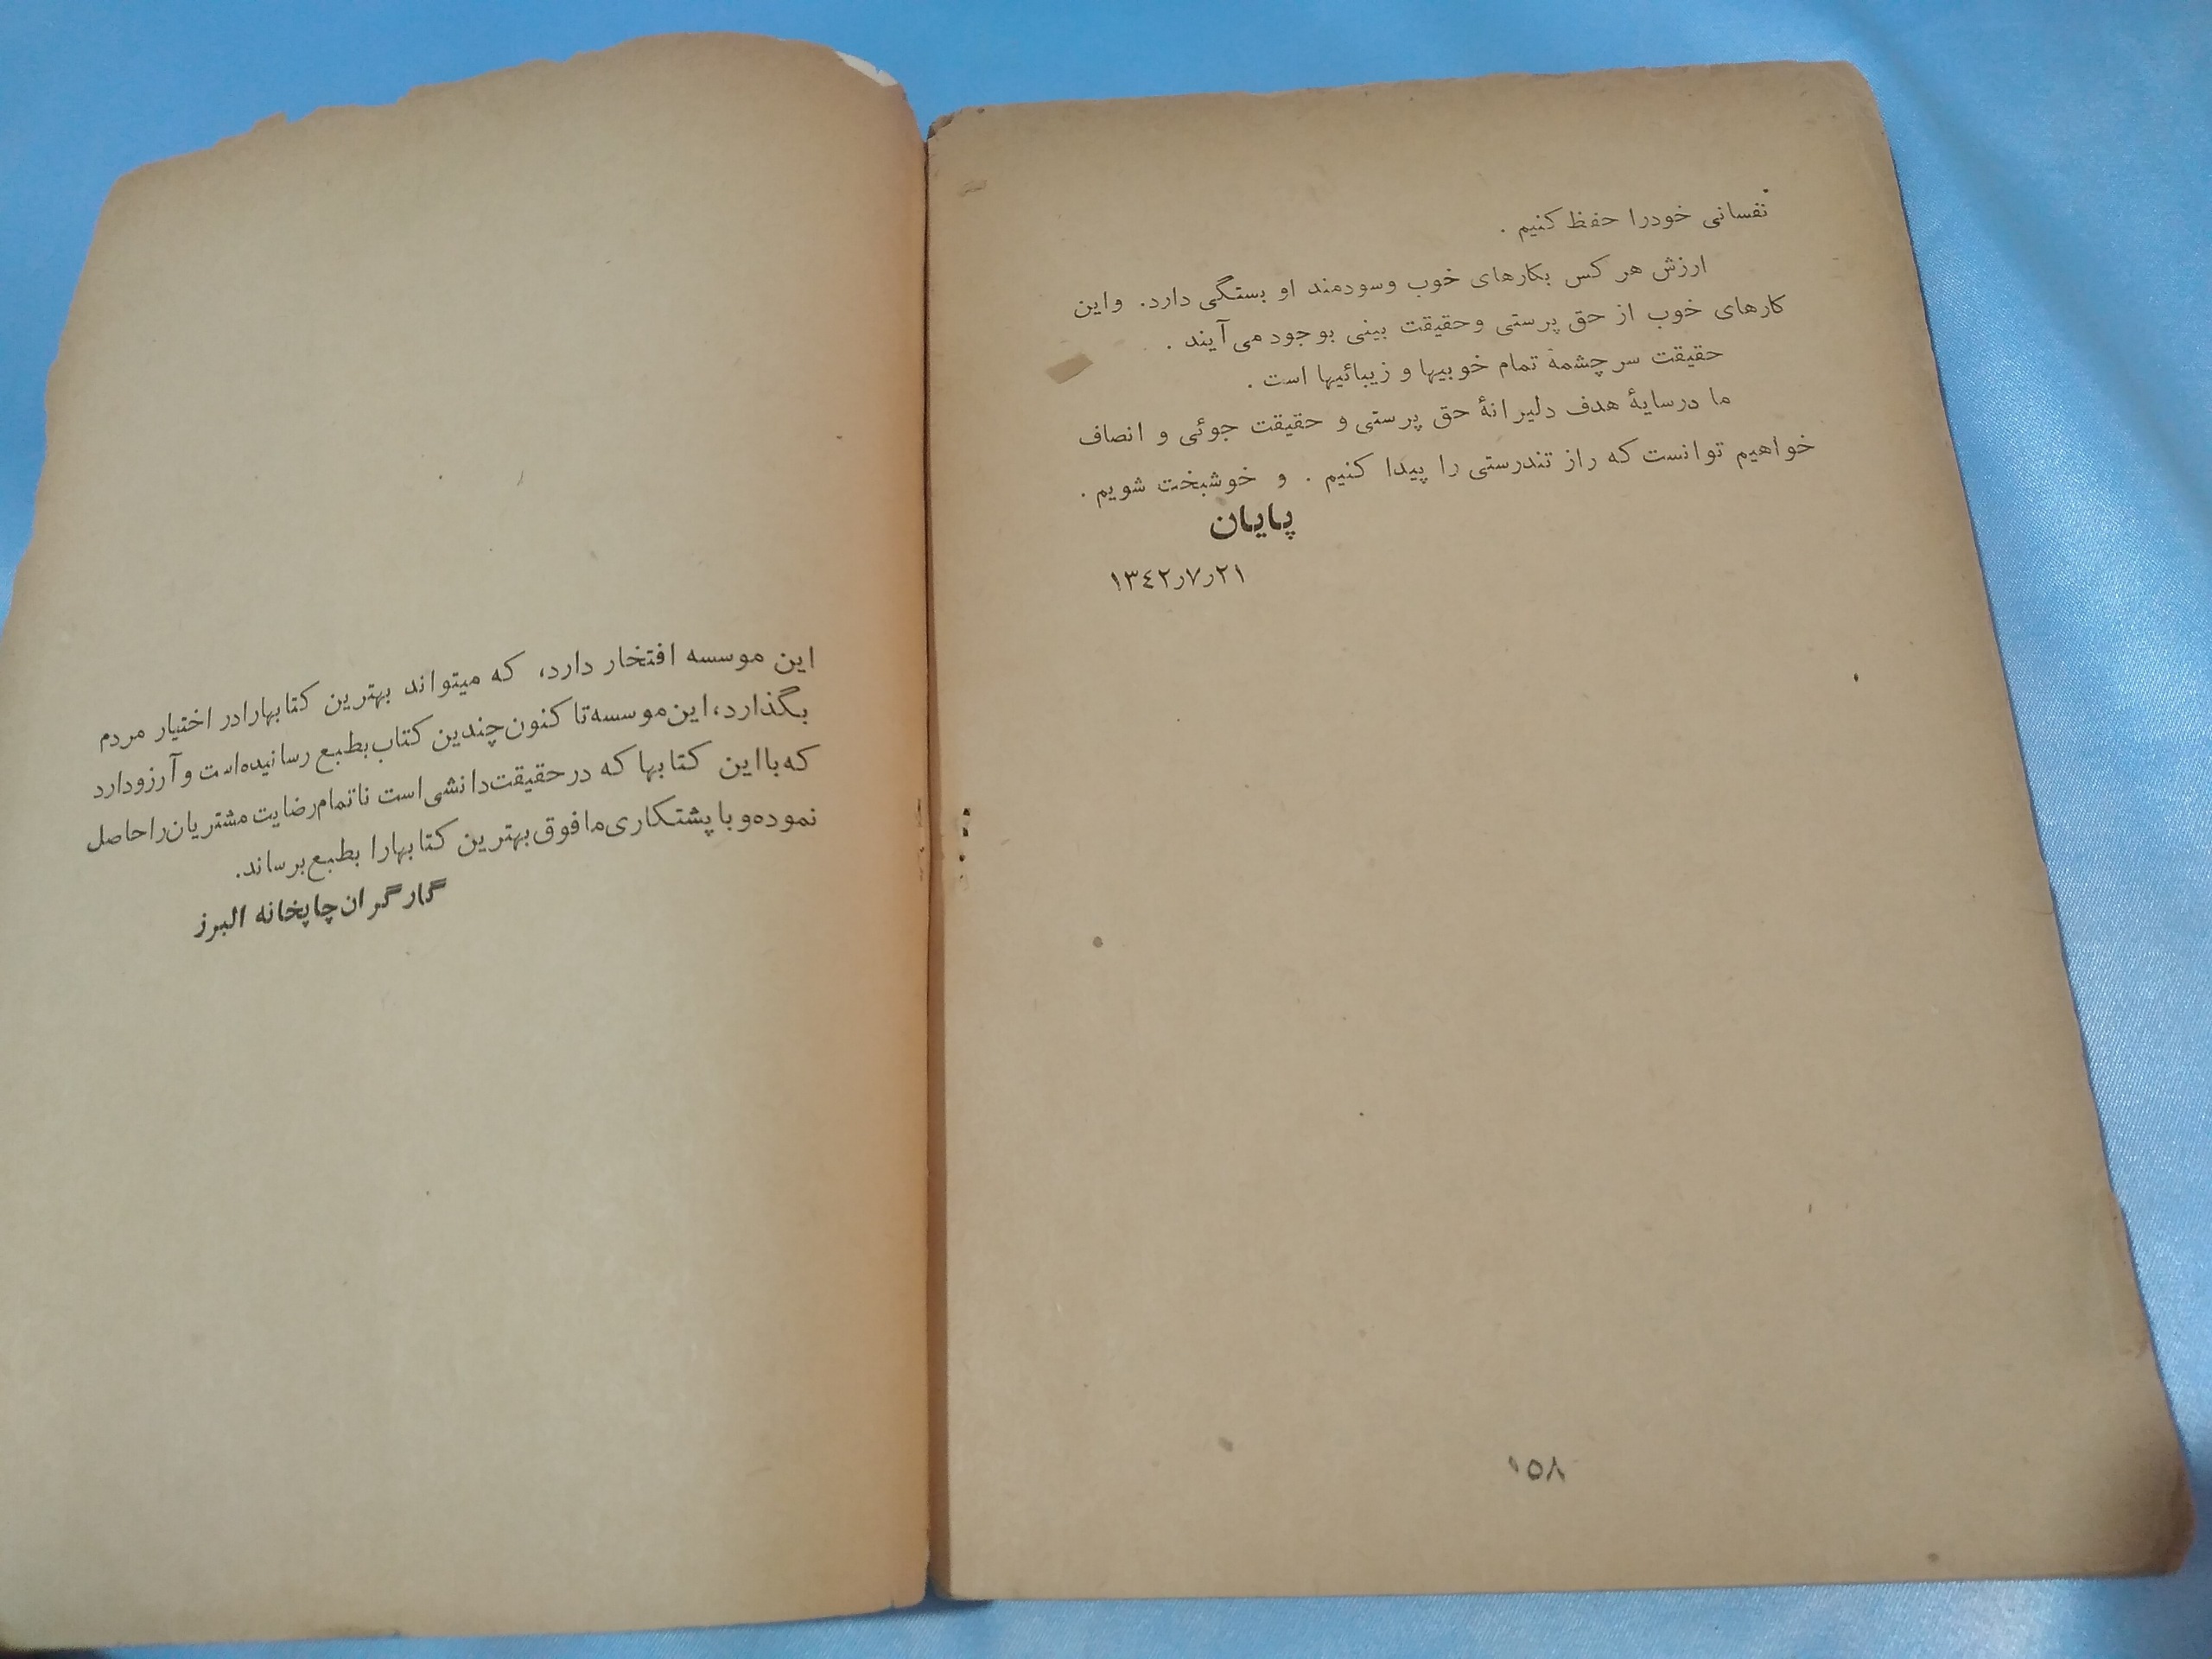 نفسانی خودرا حفظ کنیم .
ارزش هر کس بکارهای خوب وسودمند او بستگی دارد. واین
کارهای خوب از حق پرستی وحقیقت بینی بوجود می‌آیند .
حقیقت سرچشمهٔ تمام خوبیها و زیبائیها است .
ما درسایهٔ هدف دلیرانهٔ حق پرستی و حقیقت جوئی و انصاف
خواهیم توانست که راز تندرستی را پیدا کنیم . و خوشبخت شویم .
پایان
۲۱ر۷ر۱۳۴۲
۱۵۸
این موسسه افتخار دارد، که میتواند بهترین کتابهارادر اختیار مردم
بگذارد، این موسسه تا کنون چندین کتاب بطبع رسانیده‌است و آرزودارد
که بااین کتابها که درحقیقت دانشی است ناتمام رضایت مشتریان راحاصل
نموده و با پشتکاری مافوق بهترین کتابهارا بطبع برساند.
گارگران چاپخانه البرز